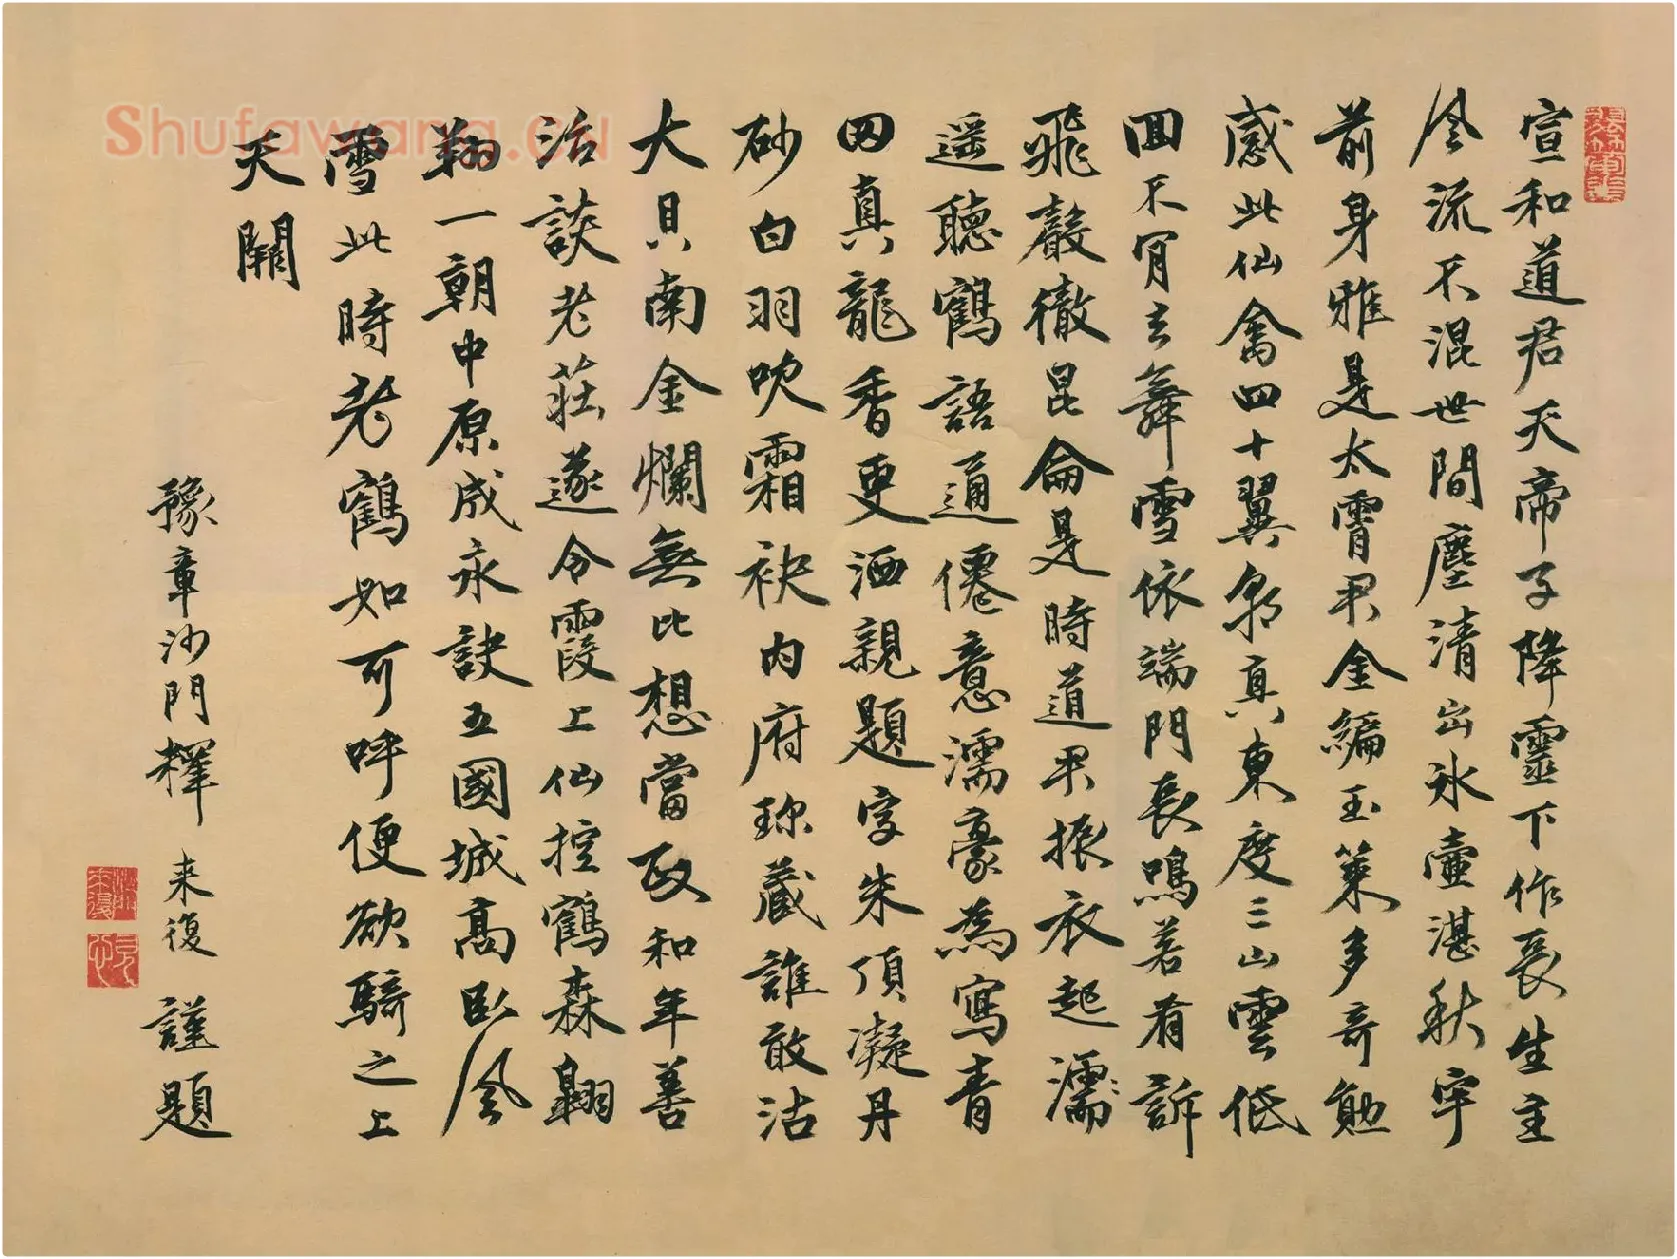 宣和道君天帝子降靈下作長生主
風流不混世間塵清出冰壺湛秋宇
前身雅是太霄君金編玉策多奇勳
感此仙禽四十翼朝真東度三山雲低
回不肯去舞雪依端門長鳴若有訴
飛聲徹昆侖是時道君振衣起濡
遥聽鶴語通僊意濡豪為寫青
田真龍香更洒親題字朱頂凝丹
砂白羽吹霜袂内府珎藏誰敢沽
大貝南金爛無比想當政和年善
治談老莊遂令霞上仙控鶴森翱
翔一朝中原成永訣五國城高卧風
雪此時老鶴如可呼便欲騎之上
天闕
豫章沙門釋来復謹題
Shufawang.CN